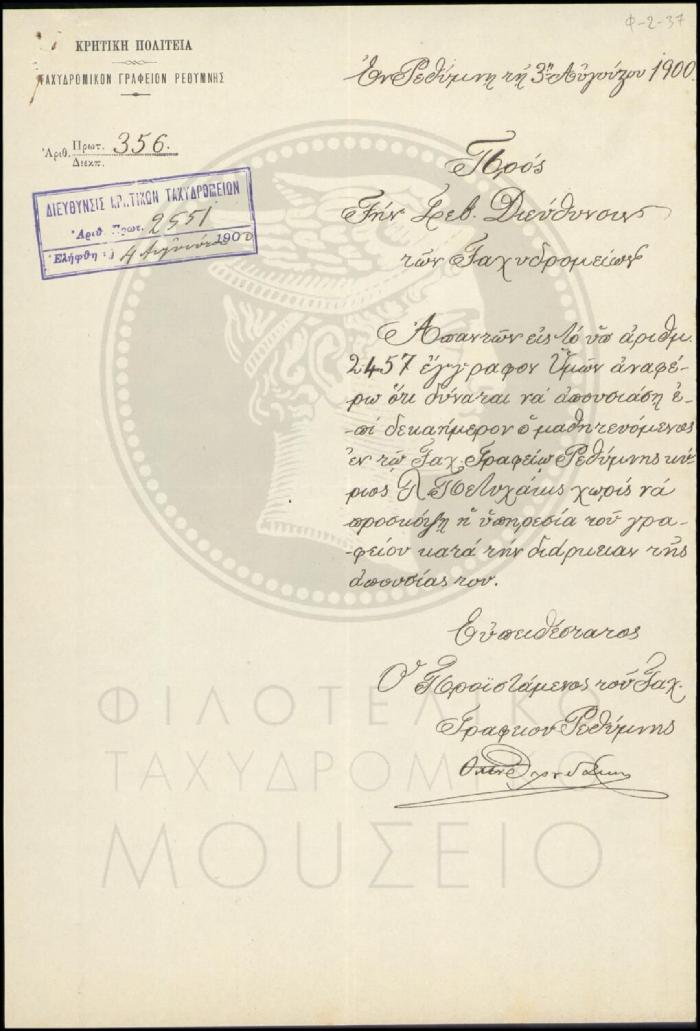 Φ-2-37
ΚΡΗΤΙΚΗ ΠΟΛΙΤΕΙΑ
ΤΑΧΥΔΡΟΜΙΚΟΝ ΓΡΑΦΕΙΟΝ ΡΕΘΥΜΝΗΣ
Ἐν Ρεθύμνη τῇ 3ῃ Αὐγούστου 1900
Ἀριθ. Πρωτ. 356.
Διεκπ.
ΔΙΕΥΘΥΝΣΙΣ ΚΡΗΤΙΚΩΝ ΤΑΧΥΔΡΟΜΕΙΩΝ
Ἀριθ. Πρωτ. 2551
Ἐλήφθη 4 Αὐγούστου 1900
Πρός
Τήν Σεβ. Διεύθυνσιν
τῶν Ταχυδρομείων
Ἀπαντῶν εἰς τό ὑπ ἀριθμ.
2457 ἔγγραφον Ὑμῶν ἀναφέ-
ρω ὅτι δύναται νά ἀπουσιάσῃ ἐ-
πί δεκαήμερον ὁ μαθητευόμενος
ἐν τῷ Ταχ. Γραφείῳ Ρεθύμνης κύ-
ριος Πετυχάκις χωρίς νά
προσκόψῃ ἡ ὑπηρεσία τοῦ γρα-
φείου κατά τήν διάρκειαν τῆς
ἀπουσίας του.
Εὐπειθέστατος
Ὁ Προϊστάμενος τοῦ Ταχ.
Γραφείου Ρεθύμνης
ΦΙΛΟΤΕΛΙΚΟ
ΤΑΧΥΔΡΟΜΙΚΟ
ΜΟΥΣΕΙΟ